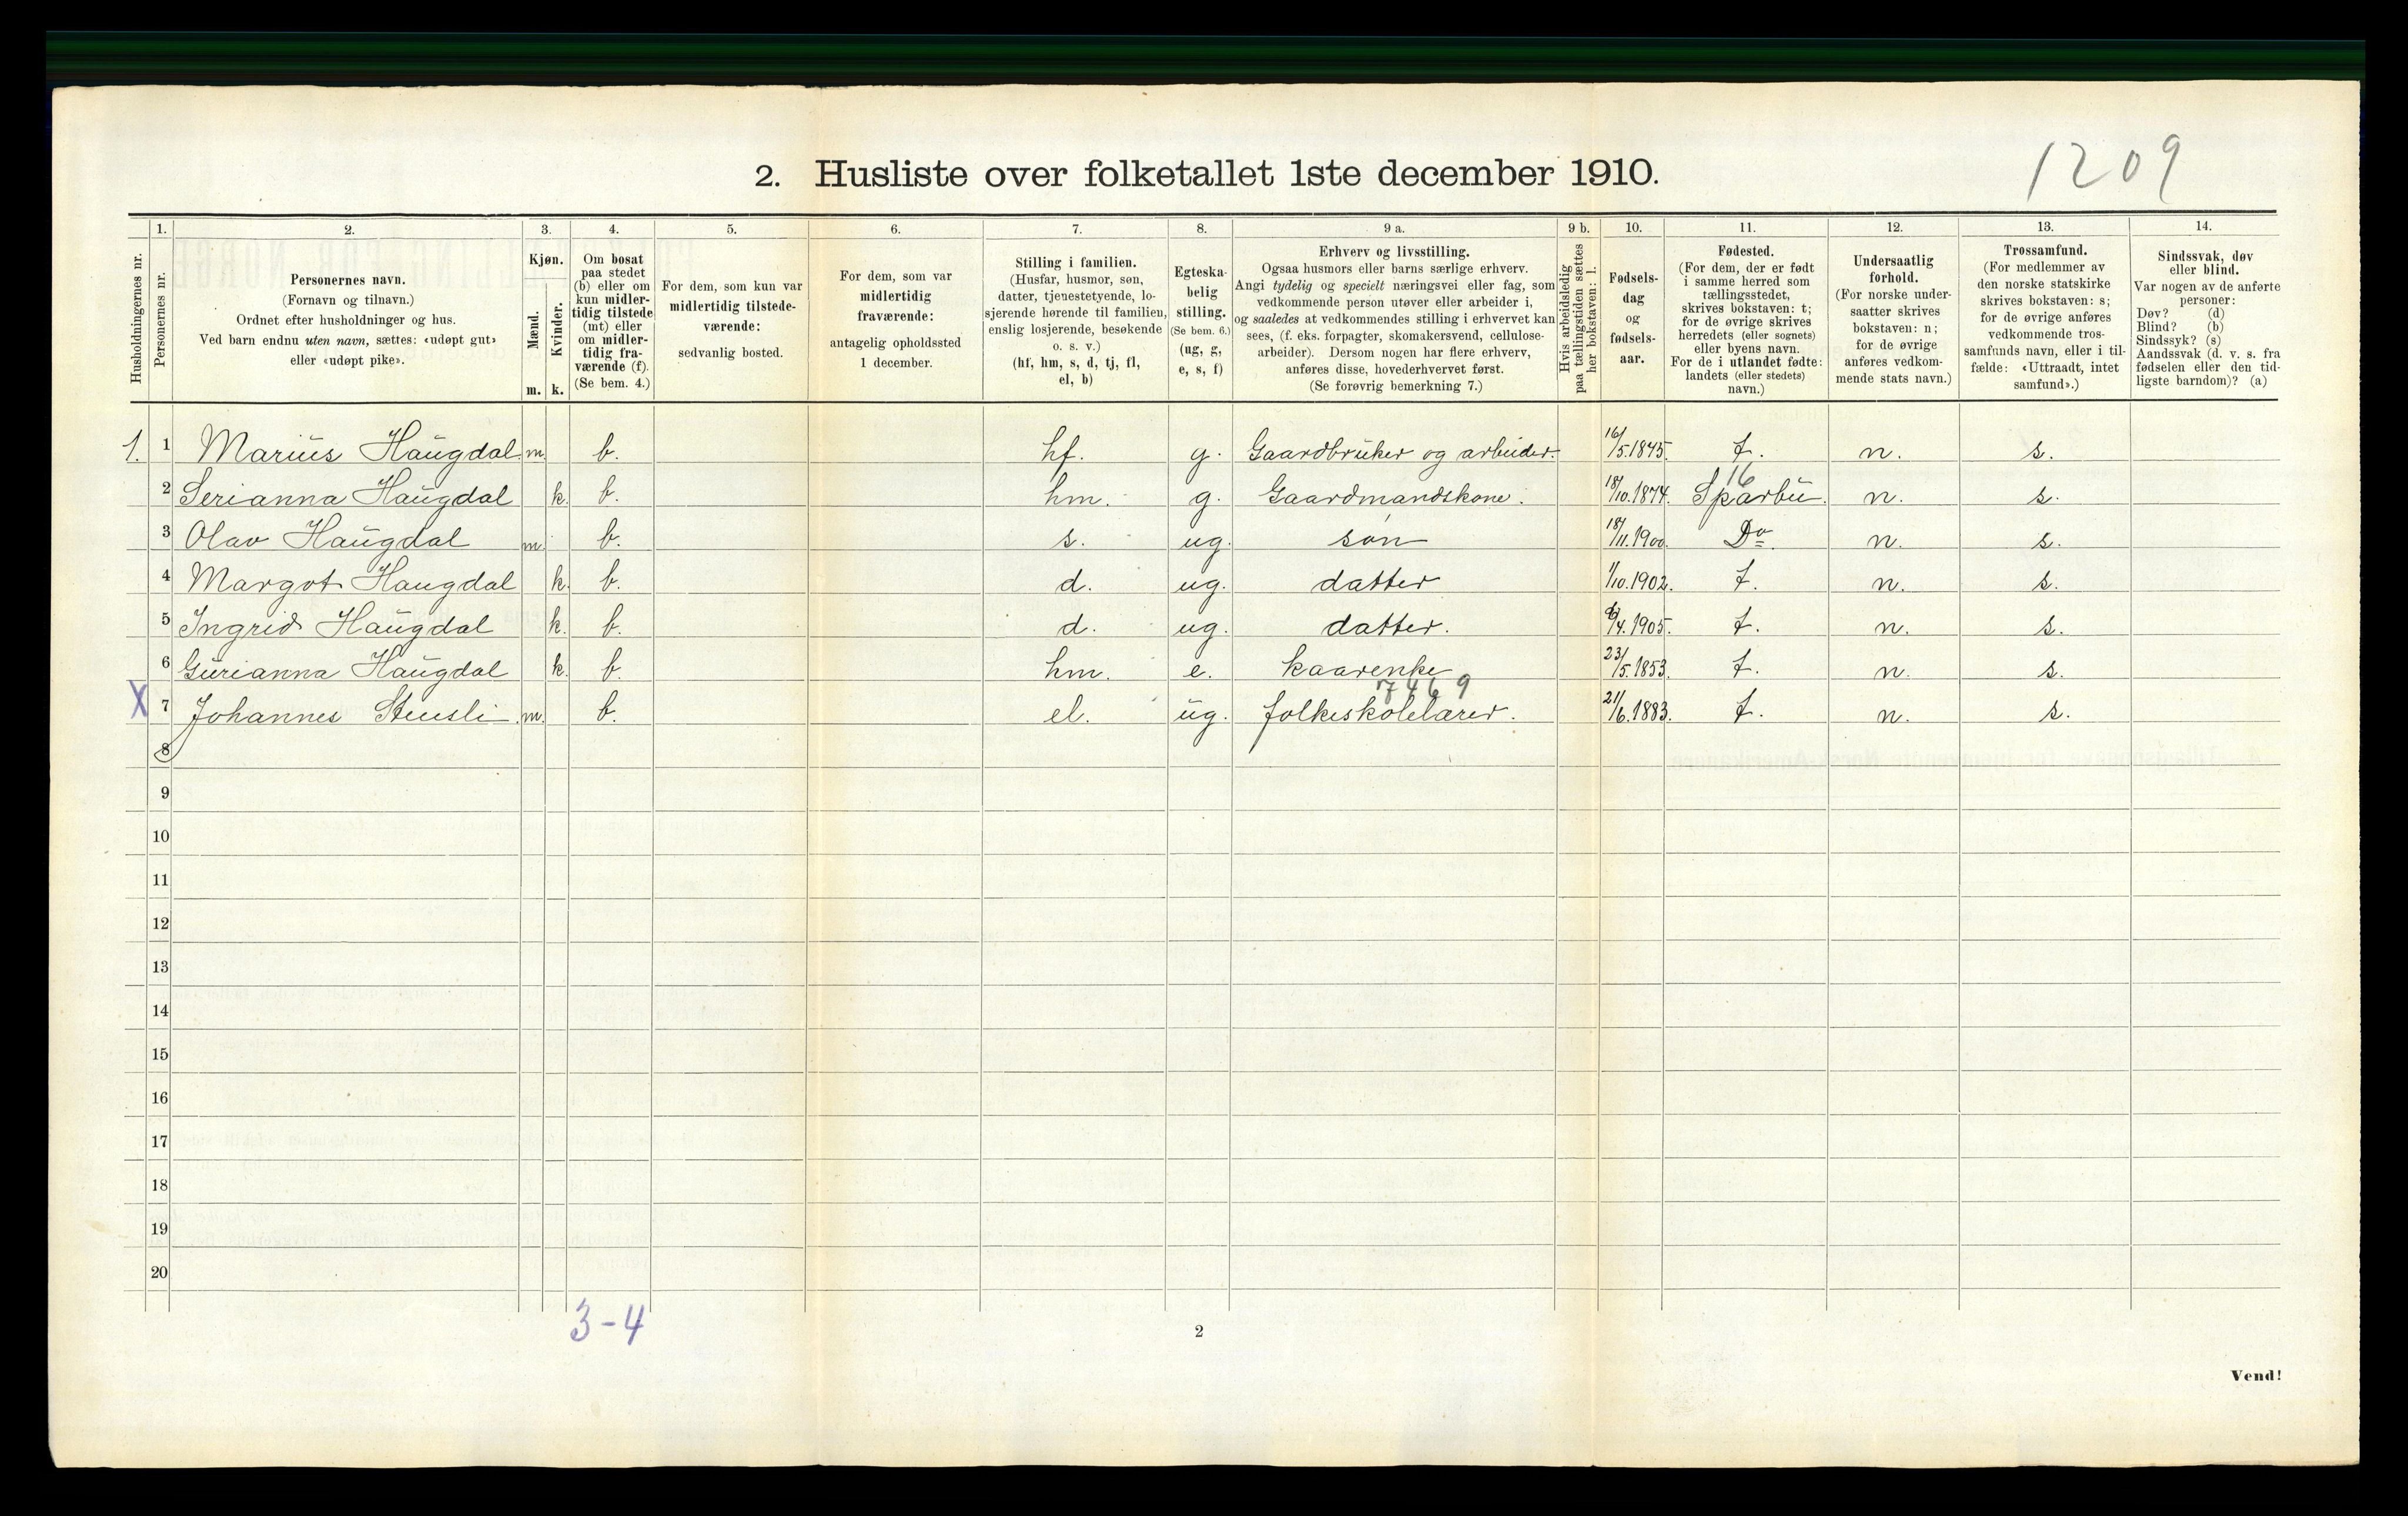 1209
2. Husliste over folketallet 1ste december 1910.
Husholdningernes nr.
1.
Personernes nr.
2.
Personernes navn.
(Fornavn og tilnavn.)
Ordnet efter husholdninger og hus.
Ved barn endnu uten navn, sættes: «udøpt gut»
eller «udøpt pike».
3.
Kjøn.
Mænd.
Kvinder.
m. k.
4.
Om bosat
paa stedet
(b) eller om
kun midler-
tidig tilstede
(mt) eller
om midler-
tidig fra-
værende (f).
(Se bem. 4.)
5.
For dem, som kun var
midlertidig tilstede-
værende:
sedvanlig bosted.
6.
For dem, som var
midlertidig
fraværende:
antagelig opholdssted
1 december.
7.
Stilling i familien.
(Husfar, husmor, søn,
datter, tjenestetyende, lo-
sjerende hørende til familien,
enslig losjerende, besøkende
o. s. v.)
(hf, hm, s, d, tj, fl,
el, b)
8.
Egteska-
belig
stilling.
(Se bem. 6.)
(ug, g,
e, s, f)
9 a.
Erhverv og livsstilling.
Ogsaa husmors eller barns særlige erhverv.
Angi tydelig og specielt næringsvei eller fag, som
vedkommende person utøver eller arbeider i,
og saaledes at vedkommendes stilling i erhvervet kan
sees, (f. eks. forpagter, skomakersvend, cellulose-
arbeider). Dersom nogen har flere erhverv,
anføres disse, hovederhvervet først.
(Se forøvrig bemerkning 7.)
9 b.
Hvis arbeidsledig
paa tællingstiden sættes
her bokstaven: l.
10.
Fødsels-
dag
og
fødsels-
aar.
11.
Fødested.
(For dem, der er født
i samme herred som
tællingsstedet,
skrives bokstaven: t;
for de øvrige skrives
herredets (eller sognets)
eller byens navn.
For de i utlandet fødte:
landets (eller stedets)
navn.)
12.
Undersaatlig
forhold.
(For norske under-
saatter skrives
bokstaven: n;
for de øvrige
anføres vedkom-
mende stats navn.)
13.
Trossamfund.
(For medlemmer av
den norske statskirke
skrives bokstaven: s;
for de øvrige anføres
vedkommende tros-
samfunds navn, eller i til-
fælde: «Uttraadt, intet
samfund».)
14.
Sindssvak, døv
eller blind.
Var nogen av de anførte
personer:
Døv? (d)
Blind? (b)
Sindssyk? (s)
Aandssvak (d. v. s. fra
fødselen eller den tid-
ligste barndom)? (a)
1. 1 Marius Haugdal m. b. hf. g. Gaardbruker og arbeider. 16/5.1875. t. n. s.
16
2 Serianna Haugdal k. b. hm. g. Gaardmandskone. 18/10.1874. Sparbu. n. s.
3 Olav Haugdal m. b. s. ug. søn 18/11.1900. Do. n. s.
4 Margot Haugdal k. b. d. ug. datter 1/10.1902. t. n. s.
5 Ingrid Haugdal k. b. d. ug. datter. /4.1905. t. n. s.
6 Gurianna Haugdal k. b. hm. e. kaarenke 23/5.1853. t. n. s.
7469
X 7 Johannes Stensli m. b. el. ug. folkeskolelærer. 21/6.1883. t. n. s.
8
9
10
11
12
13
14
15
16
17
18
19
20
3-4
2
Vend!